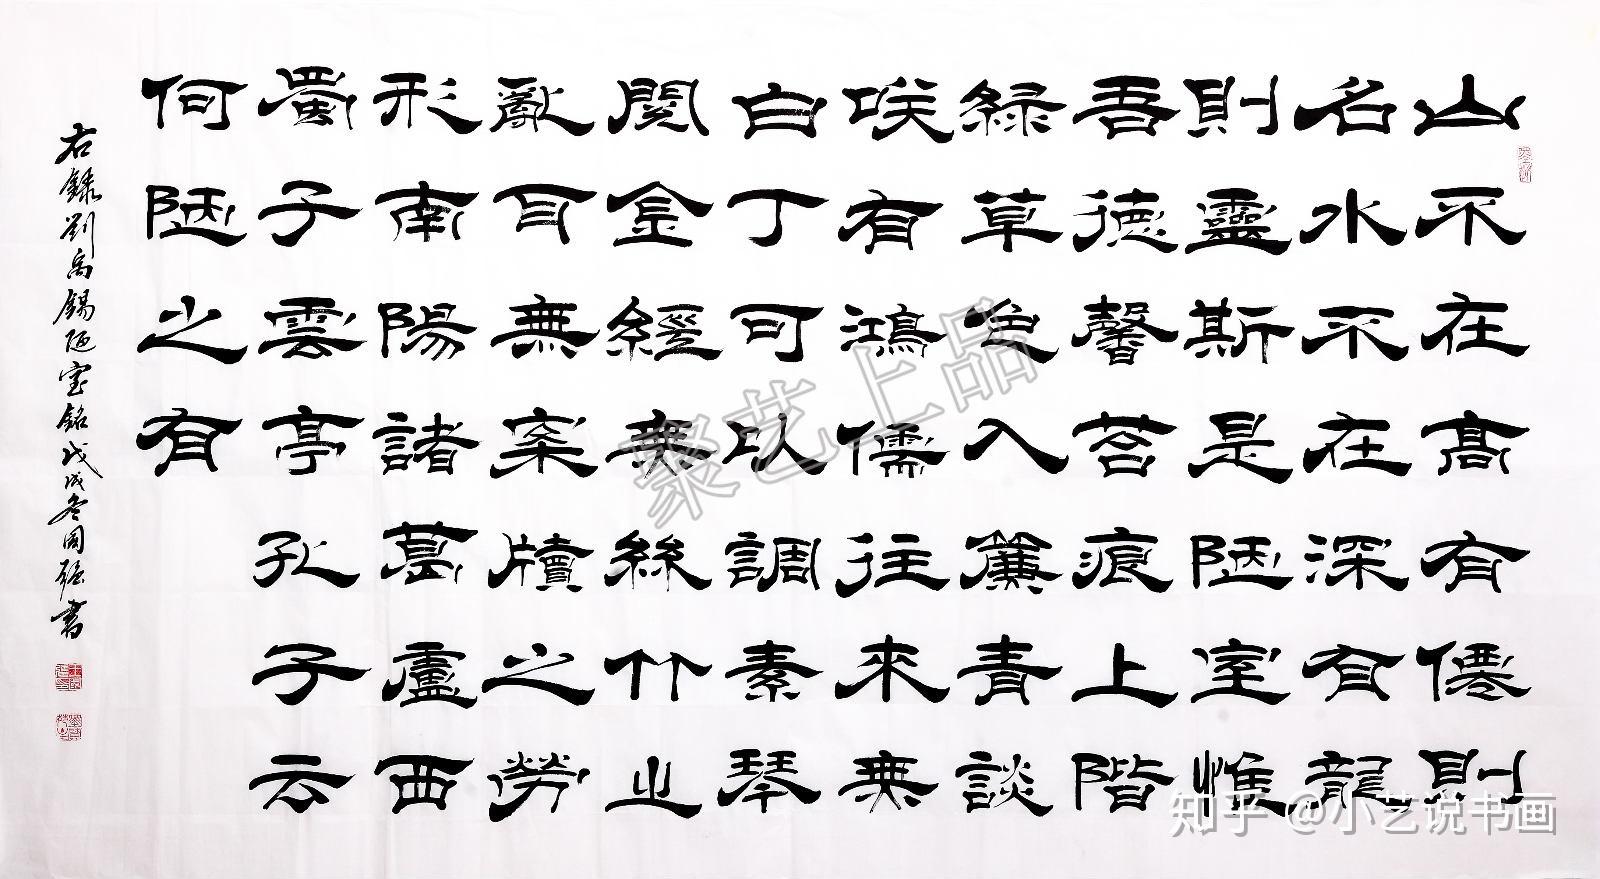 山不在高有僊則
名水不在深有龍
則靈斯是陋室惟
吾德馨苔痕上階
綠草色入簾青談
咲有鴻儒往來無
白丁可以調素琴
閱金經無絲竹之
亂耳無案牘之勞
形南陽諸葛廬西
蜀子雲亭孔子云
何陋之有
右錄劉禹錫陋室銘戊戌冬國強書
聚艺上品
知乎 @小艺说书画